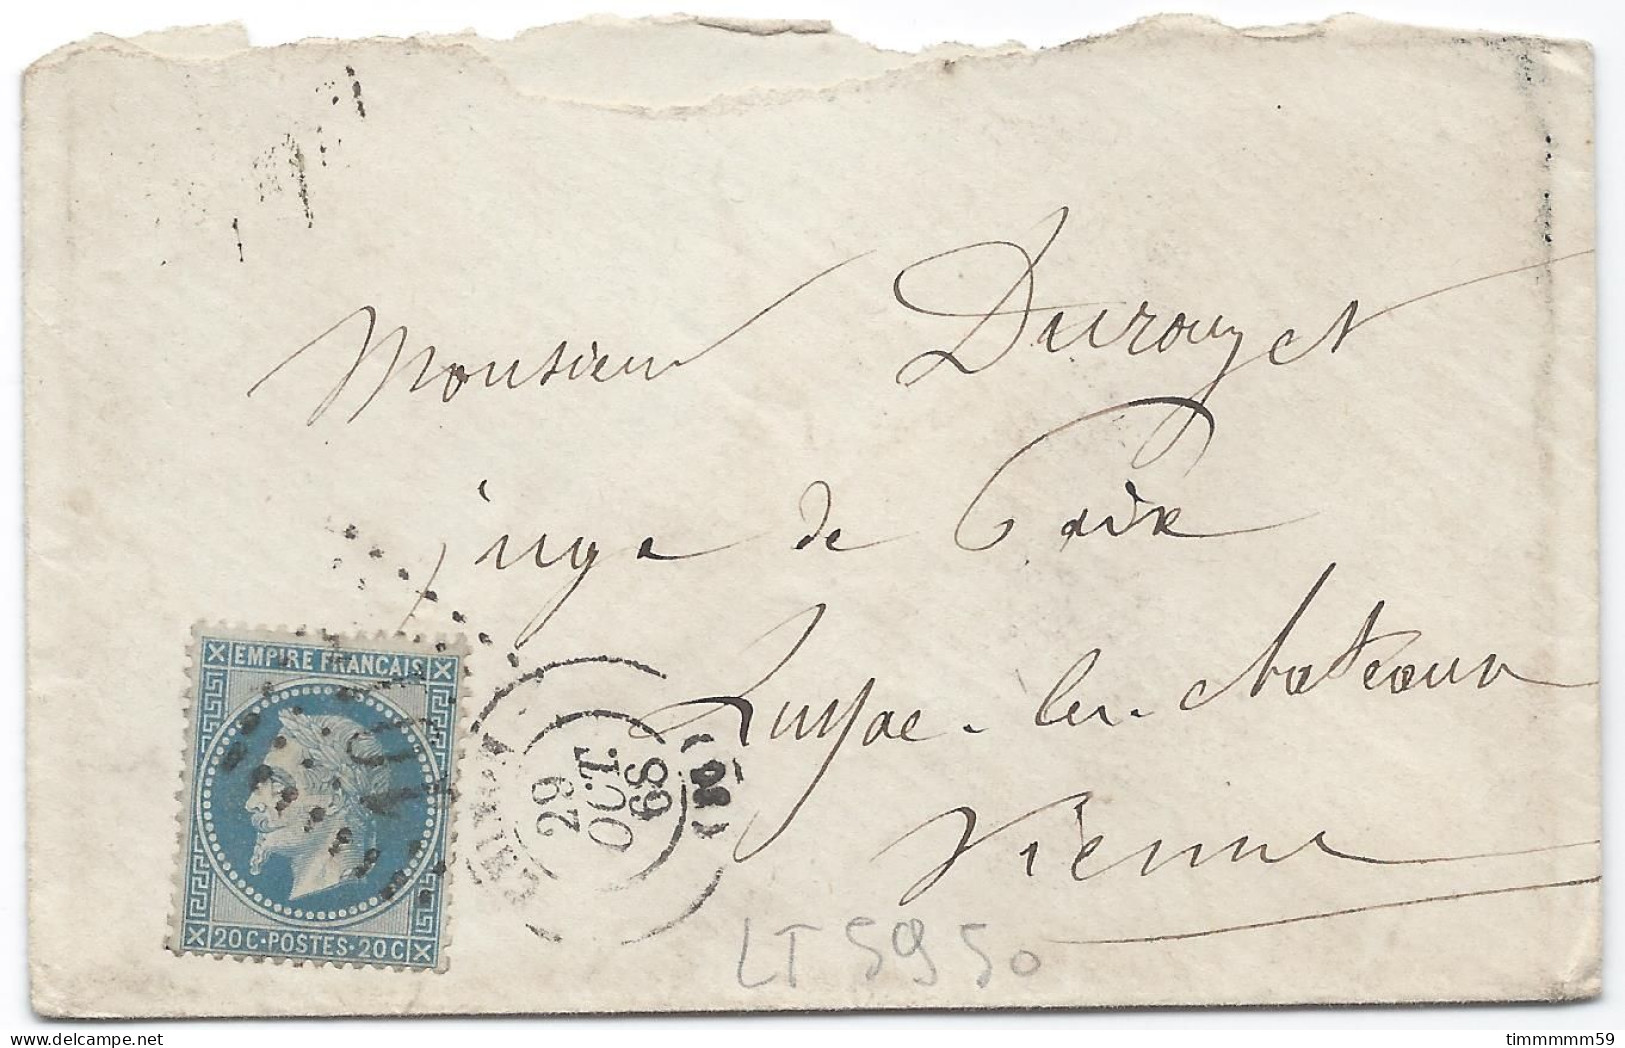 Monsieur Durouzet
juge de Paix
Lussac-les-chateaux
Vienne
EMPIRE FRANCAIS
20C·POSTES·20C
29
OCT.
68
LT 5950
timmmmm59
www.delcampe.net